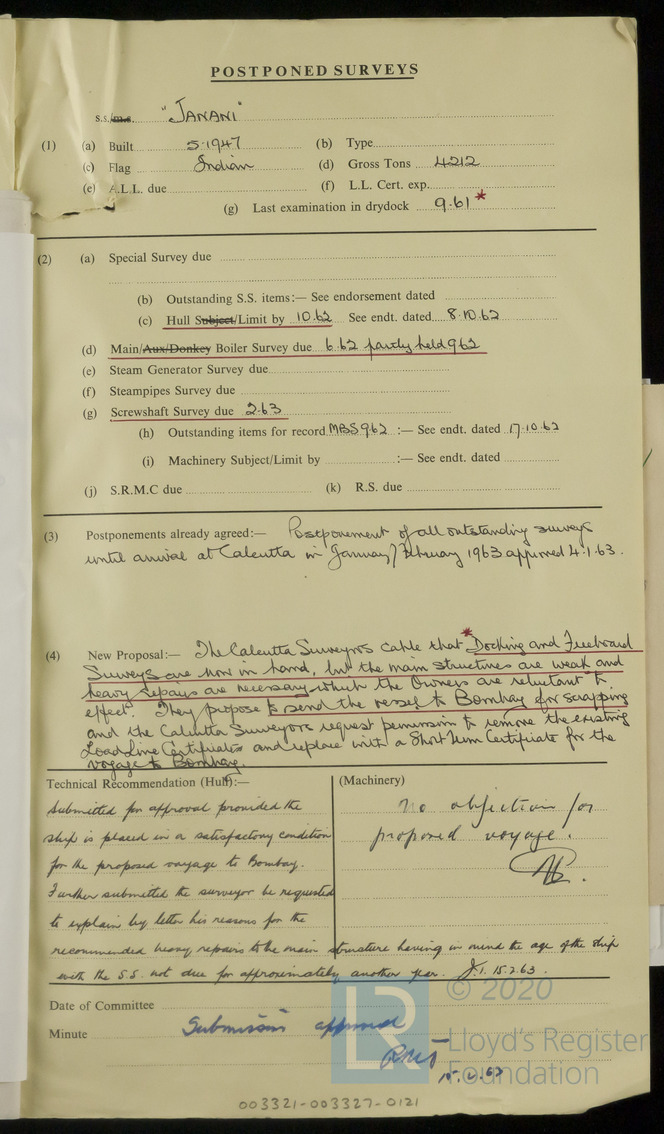 POSTPONED SURVEYS
s.s./m.s. "JANANI"
(1) (a) Built 5.1947 (b) Type
(c) Flag Indian (d) Gross Tons 4212
(e) A.L.L. due (f) L.L. Cert. exp.
(g) Last examination in drydock 9.61 *
(2) (a) Special Survey due
(b) Outstanding S.S. items:— See endorsement dated
(c) Hull Subject/Limit by 10.62 See endt. dated 8.10.62
(d) Main/Aux/Donkey Boiler Survey due 6.62 partly held 962
(e) Steam Generator Survey due
(f) Steampipes Survey due
(g) Screwshaft Survey due 2.63
(h) Outstanding items for record MBS 9.62 :— See endt. dated 17.10.62
(i) Machinery Subject/Limit by :— See endt. dated
(j) S.R.M.C due (k) R.S. due
(3) Postponements already agreed:— Postponement of all outstanding surveys
until arrival at Calcutta in January/February 1963 approved 4.1.63.
(4) New Proposal:— The Calcutta Surveyors cable that * Docking and Freeboard
Surveys are now in hand, but the main structures are weak and
heavy repairs are necessary which the Owners are reluctant to
effect. They propose to send the vessel to Bombay for scrapping
and the Calcutta Surveyors request permission to remove the existing
Load Line Certificates and replace with a Short Term Certificate for the
voyage to Bombay.
Technical Recommendation (Hull):— (Machinery)
Submitted for approval provided the
ship is placed in a satisfactory condition
for the proposed voyage to Bombay.
Further submitted the surveyor be requested
to explain by letter his reasons for the
recommended heavy repairs to the main structure having in mind the age of the ship
with the S.S. not due for approximately another year. 15.2.63.
No objection for
proposed voyage.
Date of Committee
Minute Submission approved
LR
© 2020
Lloyd's Register
Foundation
003321-003327-0121